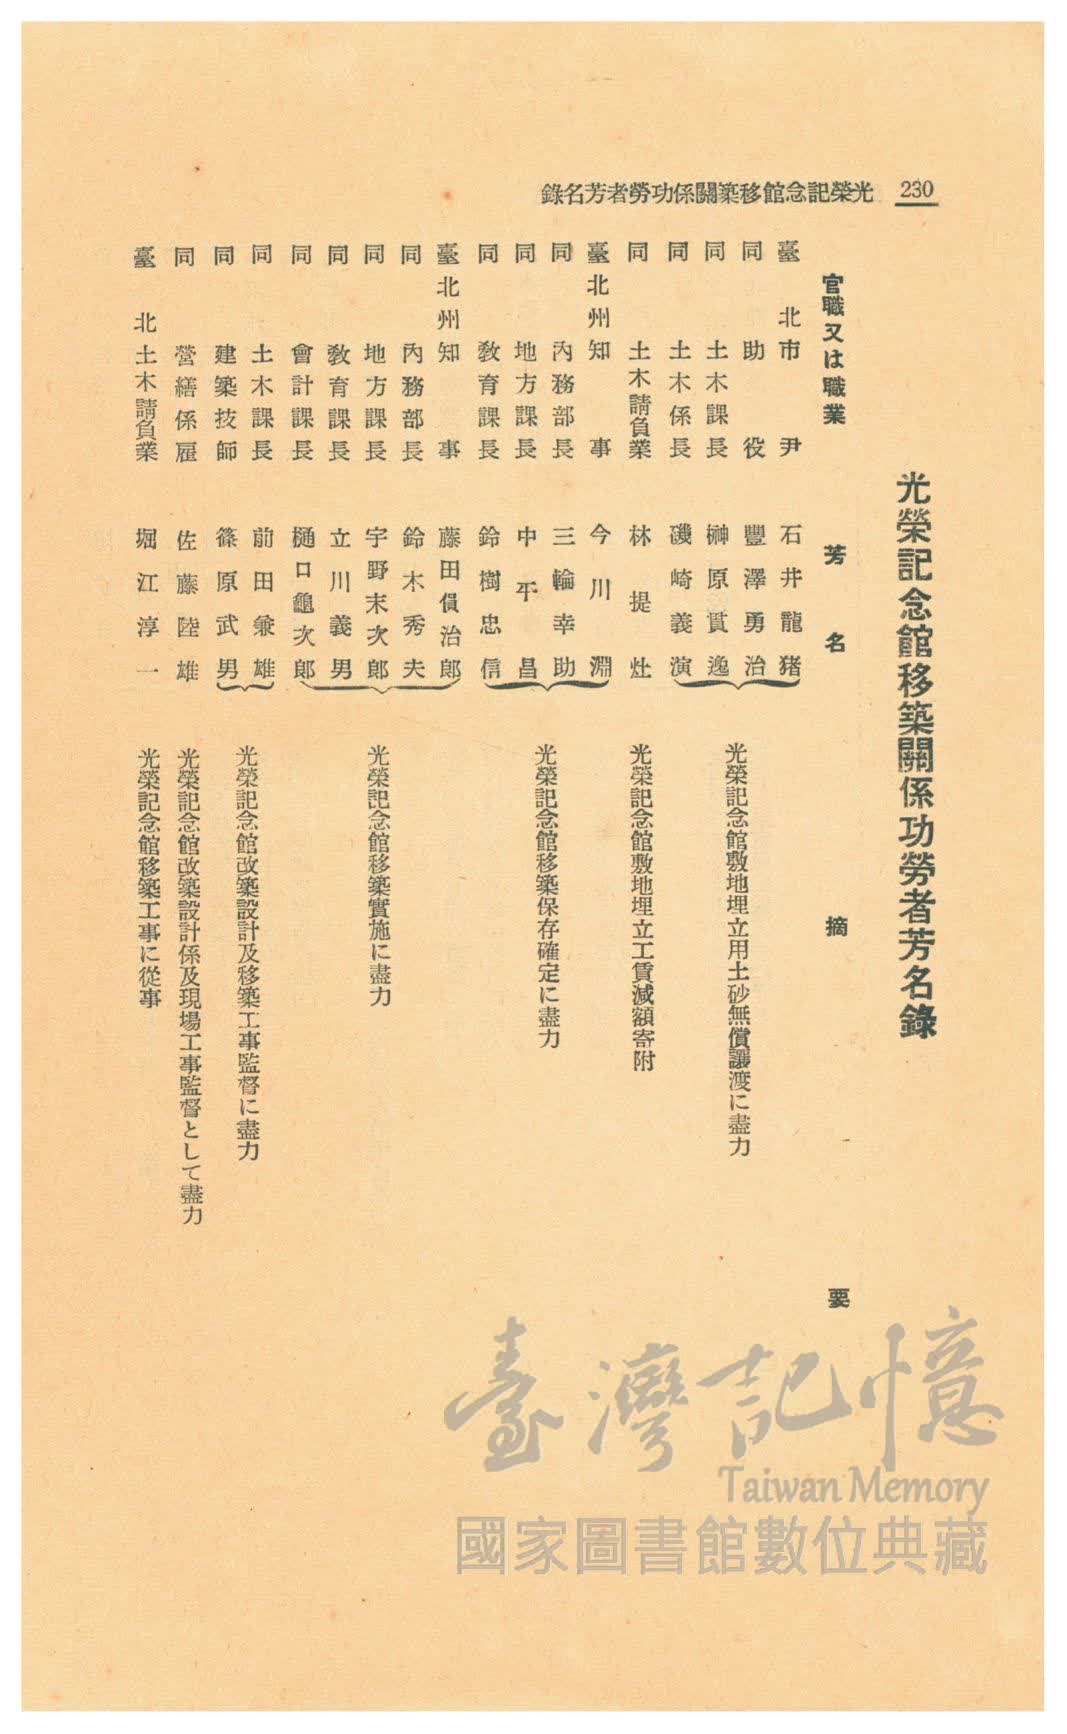 230
光榮記念館移築關係功勞者芳名錄
光榮記念館移築關係功勞者芳名錄
官職又は職業 芳名 摘要
臺北市尹 石井龍猪
同助役 豐澤勇治
同土木課長 榊原貫逸
同土木係長 磯崎義演
光榮記念館敷地埋立用土砂無償讓渡に盡力
同土木請負業 林提灶 光榮記念館敷地埋立工賃減額寄附
臺北州知事 今川淵
同內務部長 三輪幸助
同地方課長 中平昌
同敎育課長 鈴樹忠信
光榮記念館移築保存確定に盡力
臺北州知事 藤田傊治郞
同內務部長 鈴木秀夫
同地方課長 宇野末次郞
同敎育課長 立川義男
同會計課長 樋口龜次郞
光榮記念館移築實施に盡力
同土木課長 前田兼雄
同建築技師 篠原武男
光榮記念館改築設計及移築工事監督に盡力
同營繕係雇 佐藤陸雄 光榮記念館改築設計係及現場工事監督として盡力
臺北土木請負業 堀江淳一 光榮記念館移築工事に從事
臺灣記憶
Taiwan Memory
國家圖書館數位典藏